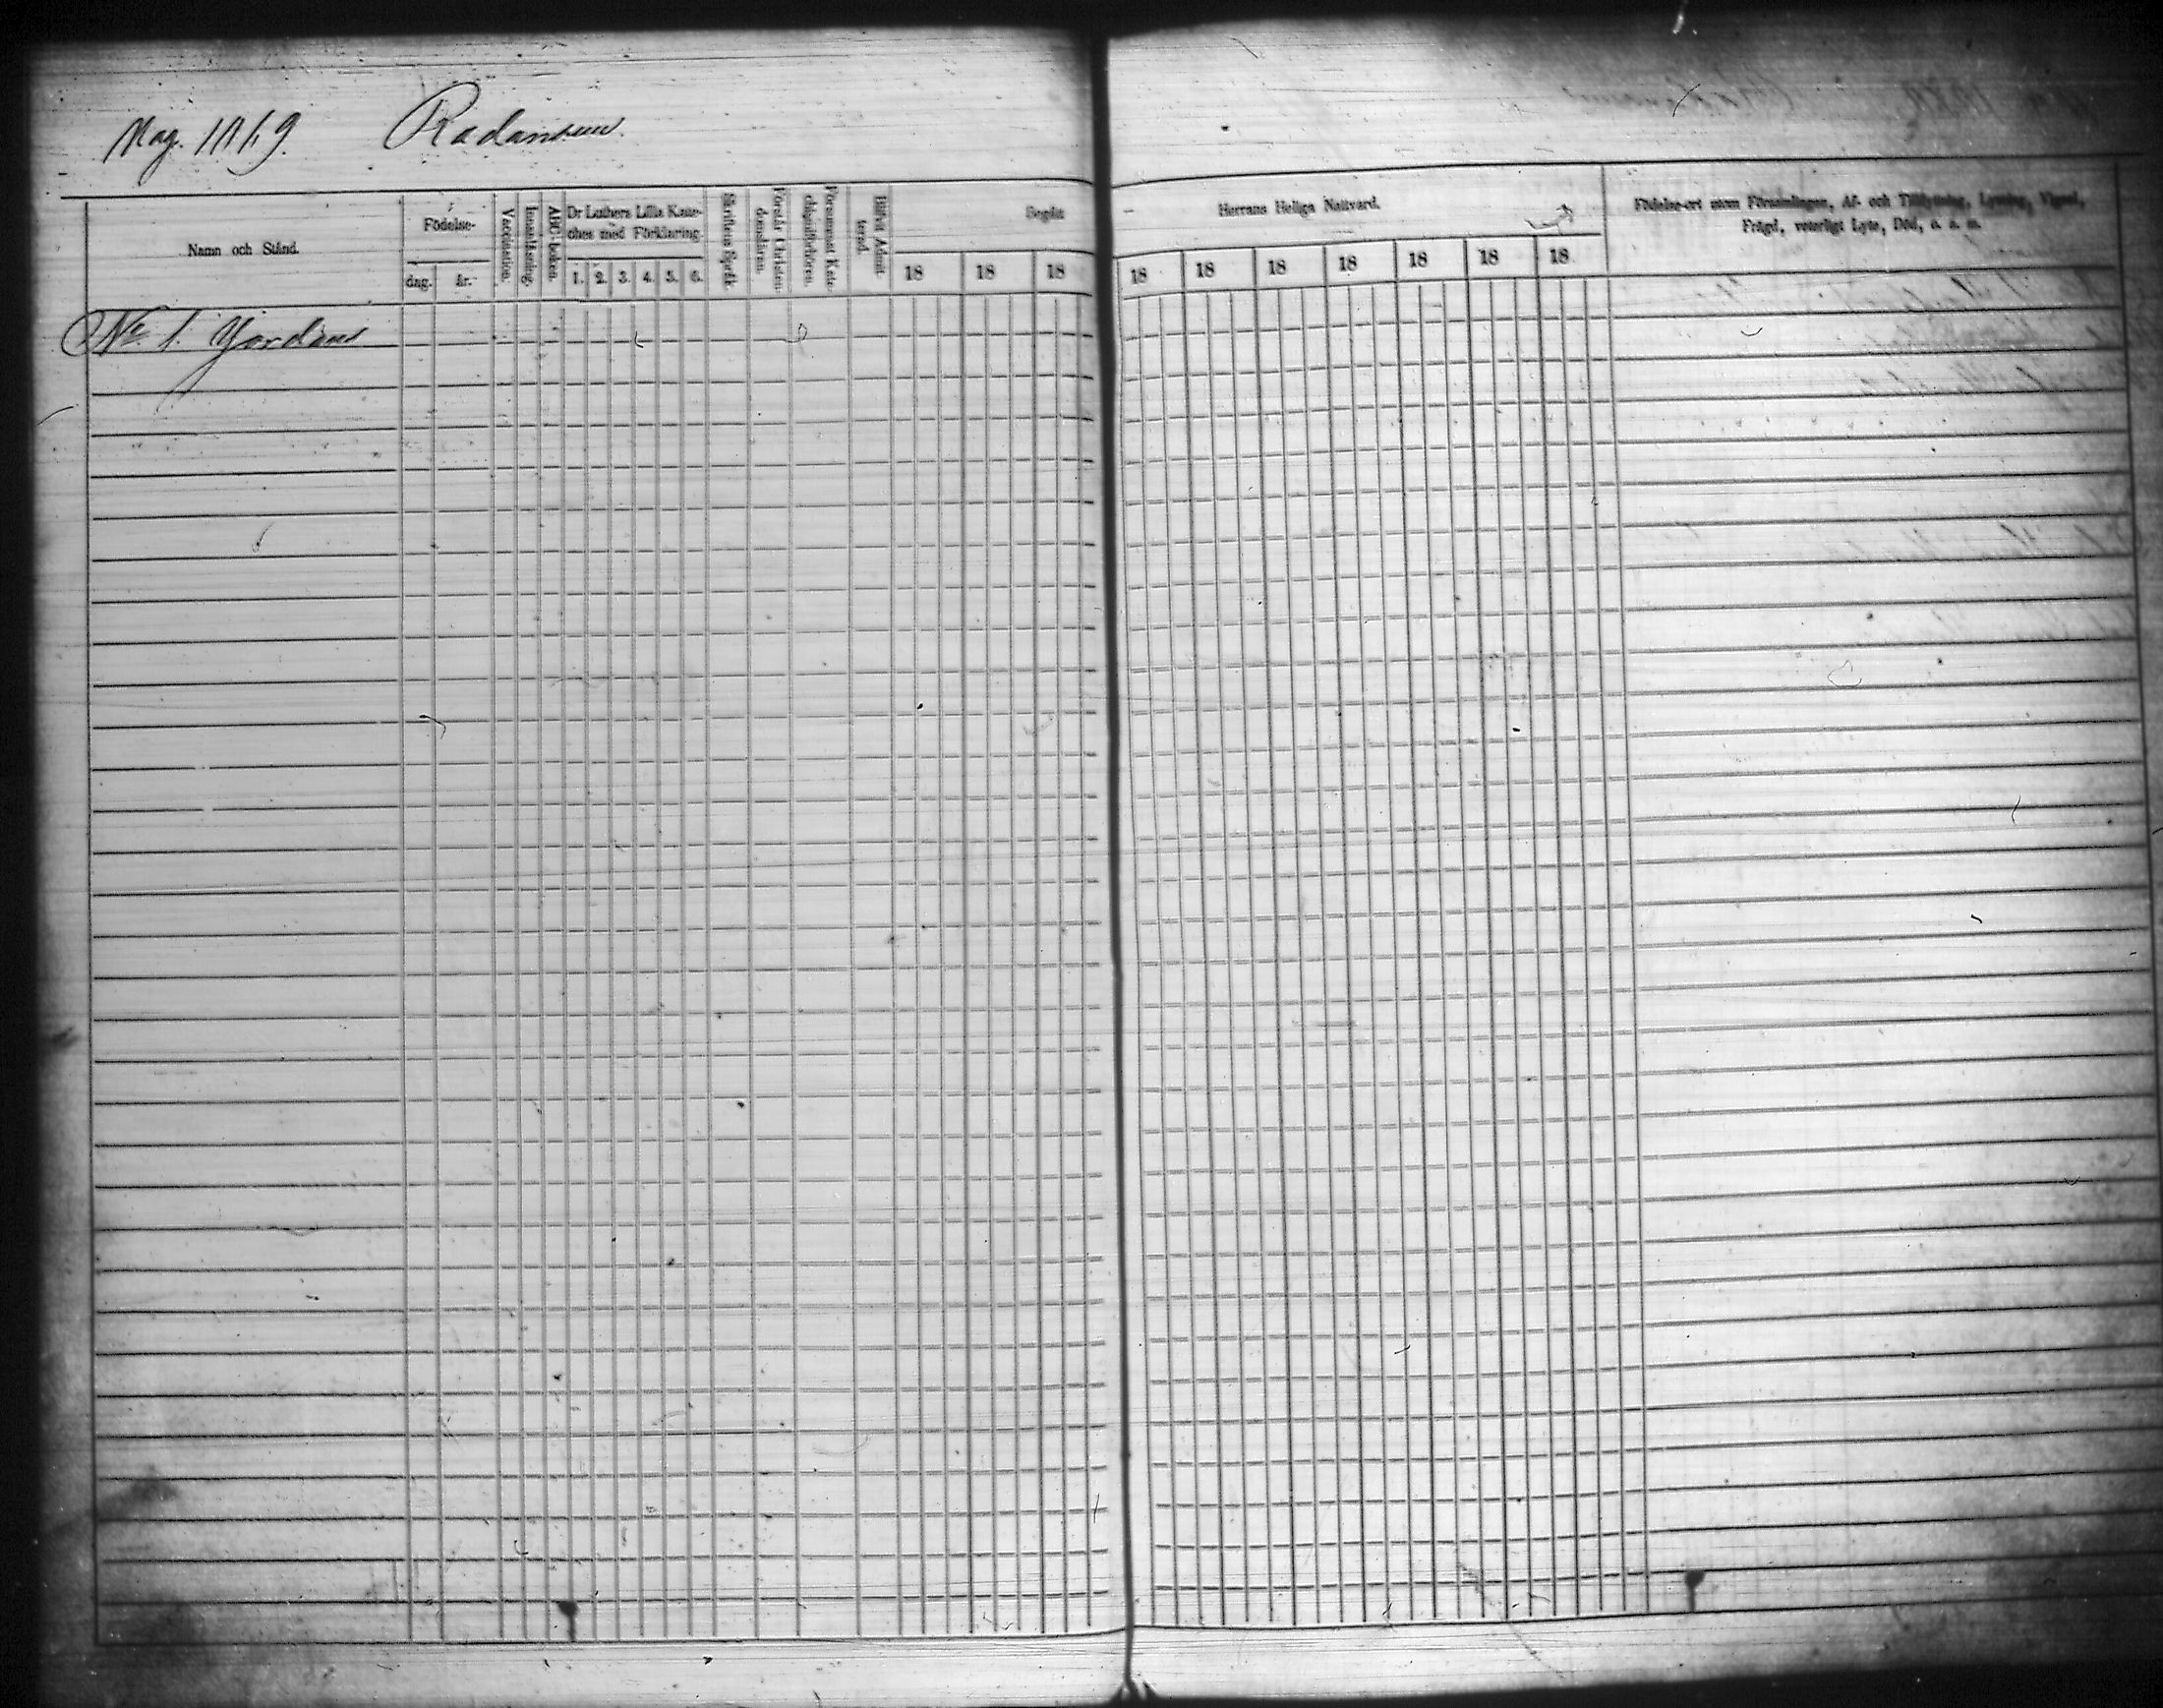 Mag. 1869. Radansuu.
Namn och Stånd.
Födelse-
dag. år.
Vaccination.
Innanläsning.
ABC-boken.
Dr Luthers Lilla Kate-
ches med Förklaring.
1. 2. 3. 4. 5. 6.
Skriftens Språk.
Förstår Christen-
domsläran.
Försummat Kate-
chismiförhören.
Blifvit Admit-
terad.
Begått
18 18 18
Herrans Heliga Nattvard.
18 18 18 18 18 18 18
Födelse-ort utom Församlingen, Af- och Tillflyttning, Lysning, Vigsel,
Frägd, veterligt Lyte, Död, o. s. m.
No 1. Jordans